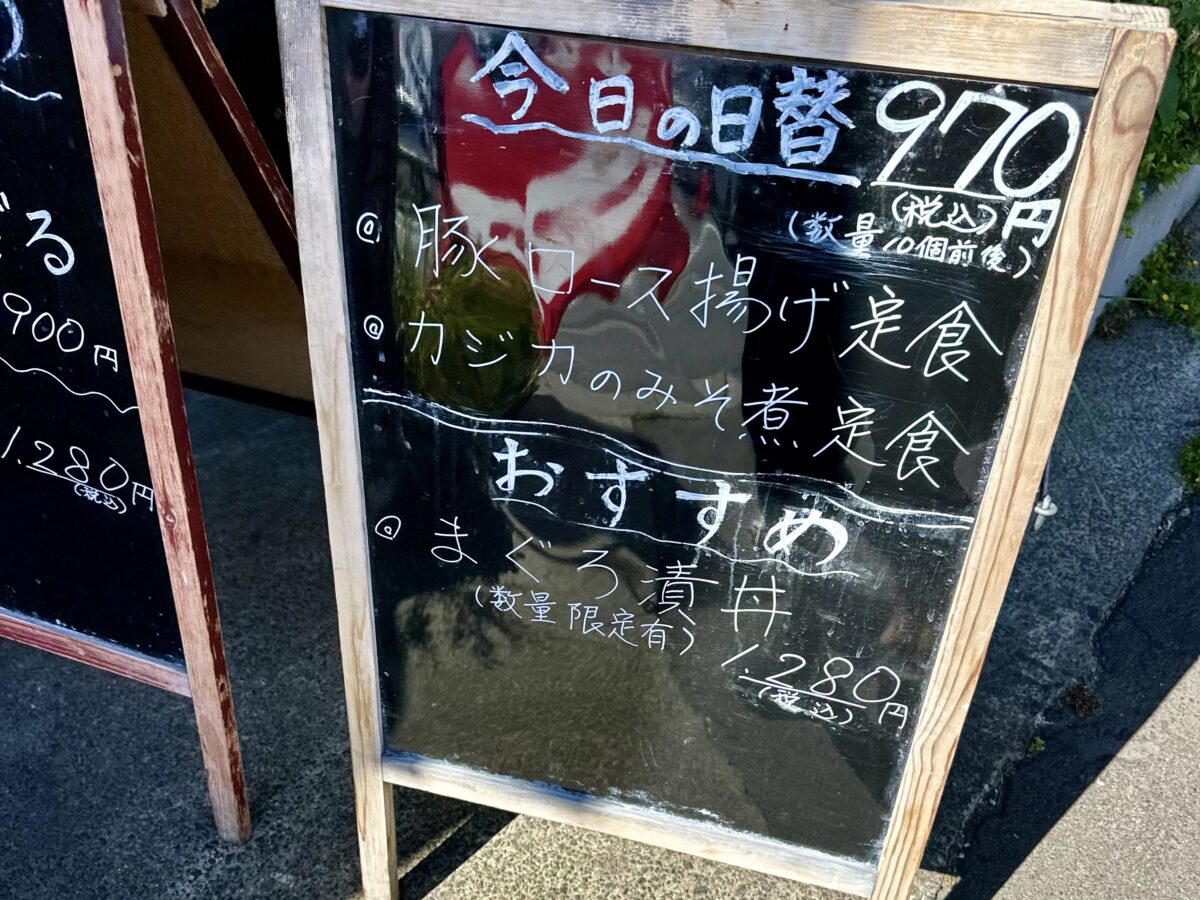 る
900円
1.280円
(税込)
今日の日替 970円
(税込)
(数量10個前後)
◎ 豚ロース揚げ定食
◎ カジカのみそ煮定食
おすすめ
◎ まぐろ漬丼
(数量限定有)
1.280円
(税込)